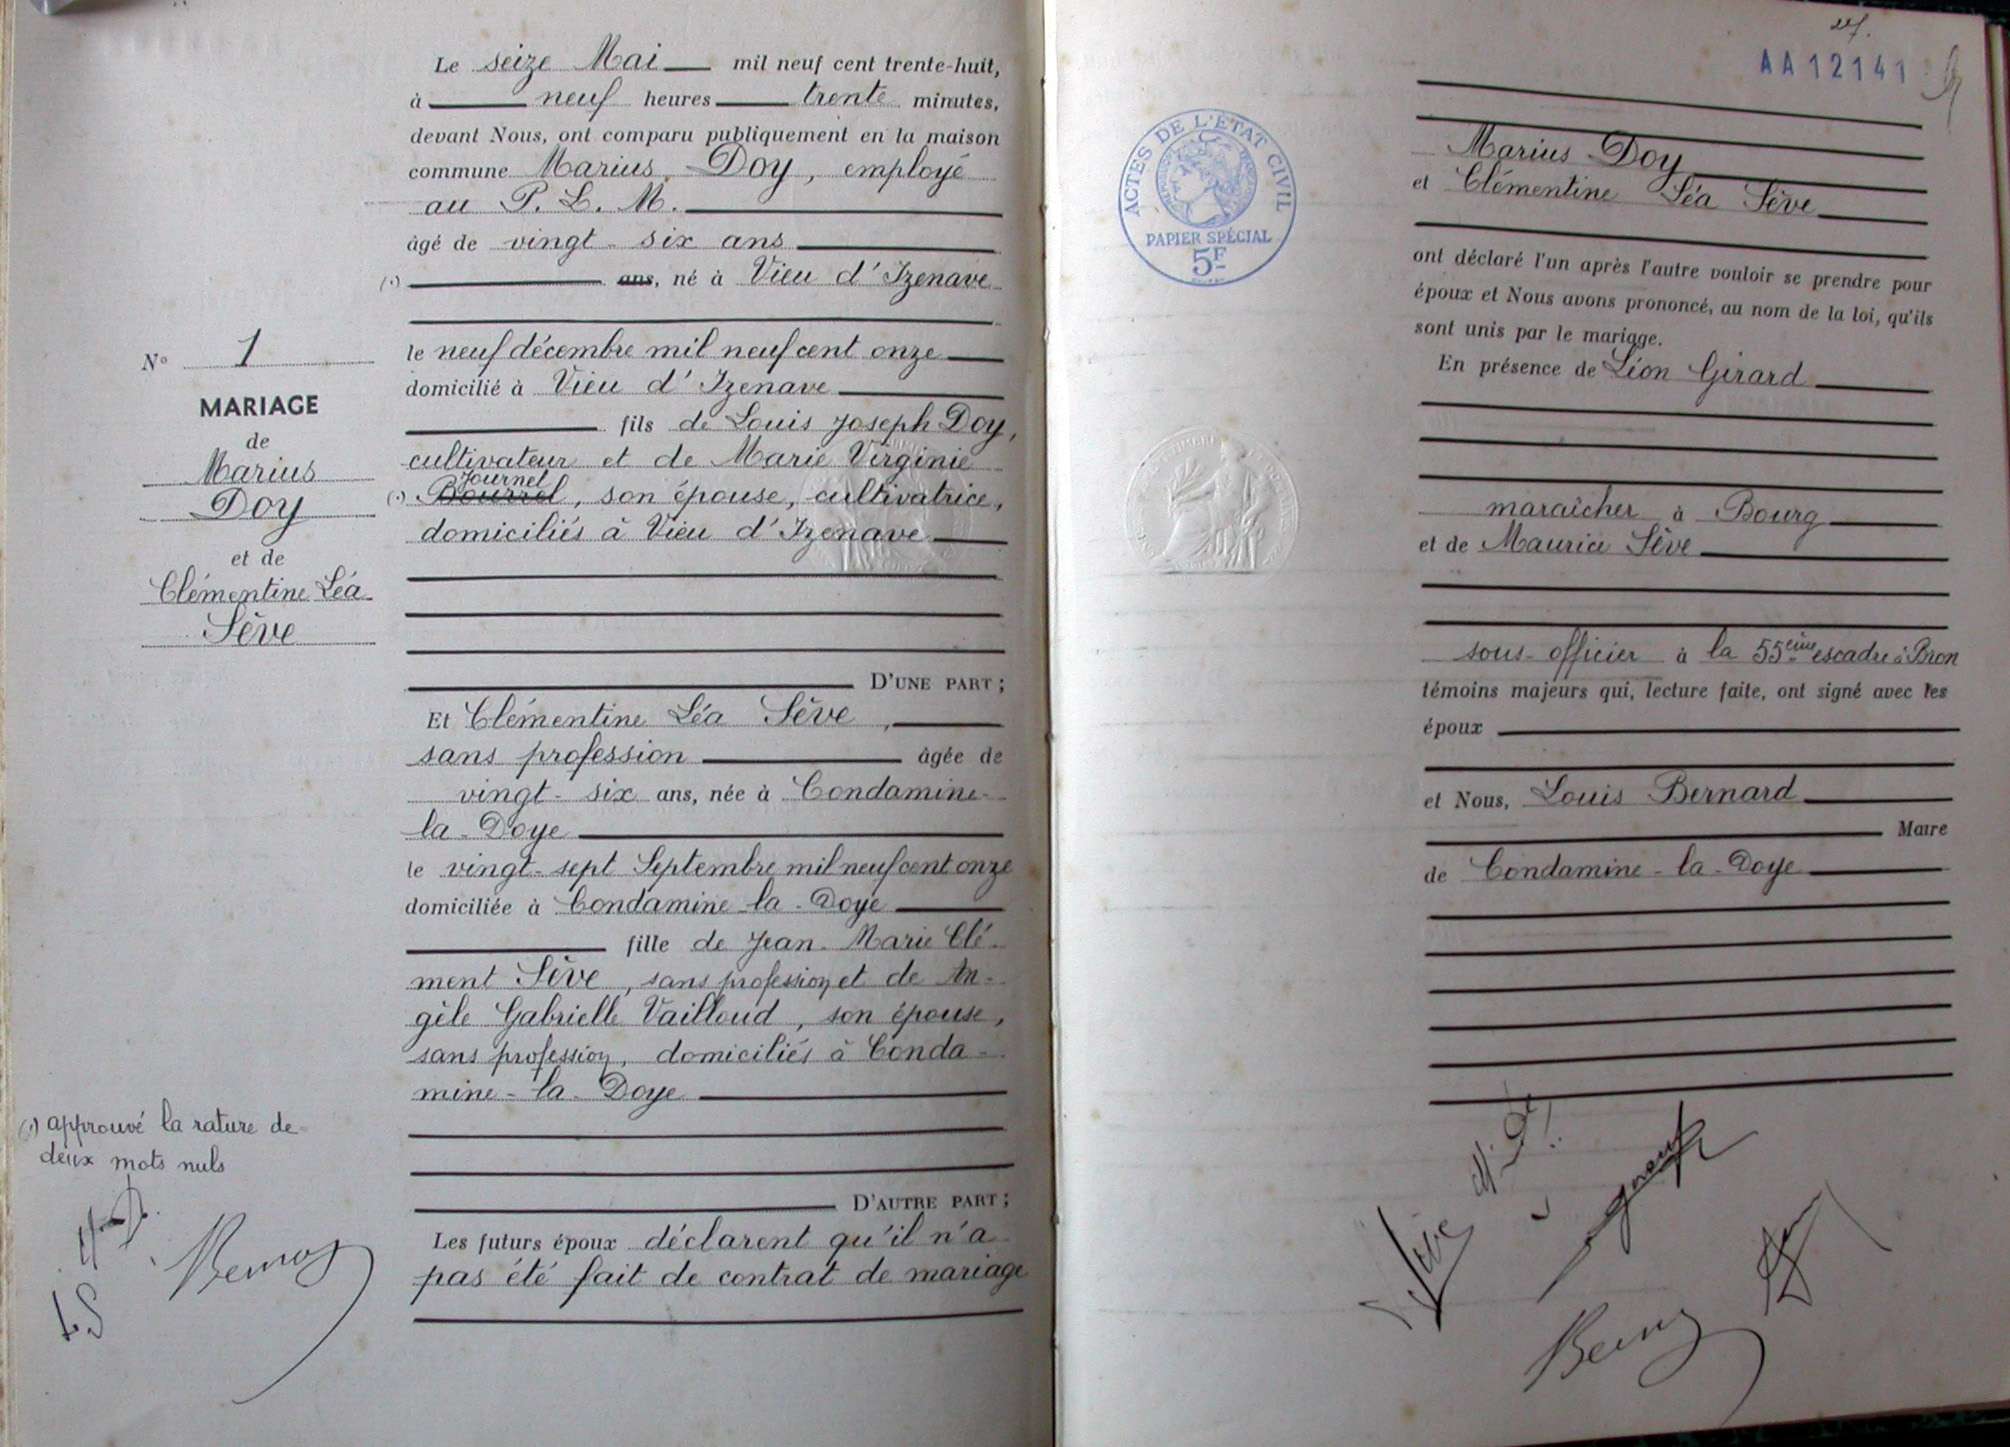 N° 1
MARIAGE
de
Marius
Doy
et de
Clémentine Léa
Sève
(1) approuvé la rature de
deux mots nuls
L S
Le seize Mai mil neuf cent trente-huit,
à neuf heures trente minutes,
devant Nous, ont comparu publiquement en la maison
commune Marius Doy, employé
au P. L. M.
âgé de vingt-six ans
(1) ans, né à Vieu d'Izenave
le neuf décembre mil neuf cent onze
domicilié à Vieu d'Izenave
fils de Louis Joseph Doy,
cultivateur et de Marie Virginie
Journel
(1) Bourrel, son épouse, cultivatrice,
domiciliés à Vieu d'Izenave
D'UNE PART;
Et Clémentine Léa Sève,
sans profession âgée de
vingt-six ans, née à Condamine-
la-Doye
le vingt-sept Septembre mil neuf cent onze
domiciliée à Condamine-la-Doye
fille de Jean-Marie Clé-
ment Sève, sans profession et de An-
gèle Gabrielle Vailloud, son épouse,
sans profession, domiciliés à Conda-
mine-la-Doye
D'AUTRE PART;
Les futurs époux déclarent qu'il n'a
pas été fait de contrat de mariage
AA12141
ACTES DE L'ETAT CIVIL
PAPIER SPÉCIAL
5F
Marius Doy
et Clémentine Léa Sève
ont déclaré l'un après l'autre vouloir se prendre pour
époux et Nous avons prononcé, au nom de la loi, qu'ils
sont unis par le mariage.
En présence de Léon Girard
maraîcher à Bourg
et de Maurice Sève
sous-officier à la 55ème escadre à Bron
témoins majeurs qui, lecture faite, ont signé avec les
époux
et Nous, Louis Bernard
Maire
de Condamine-la-Doye
L Sève